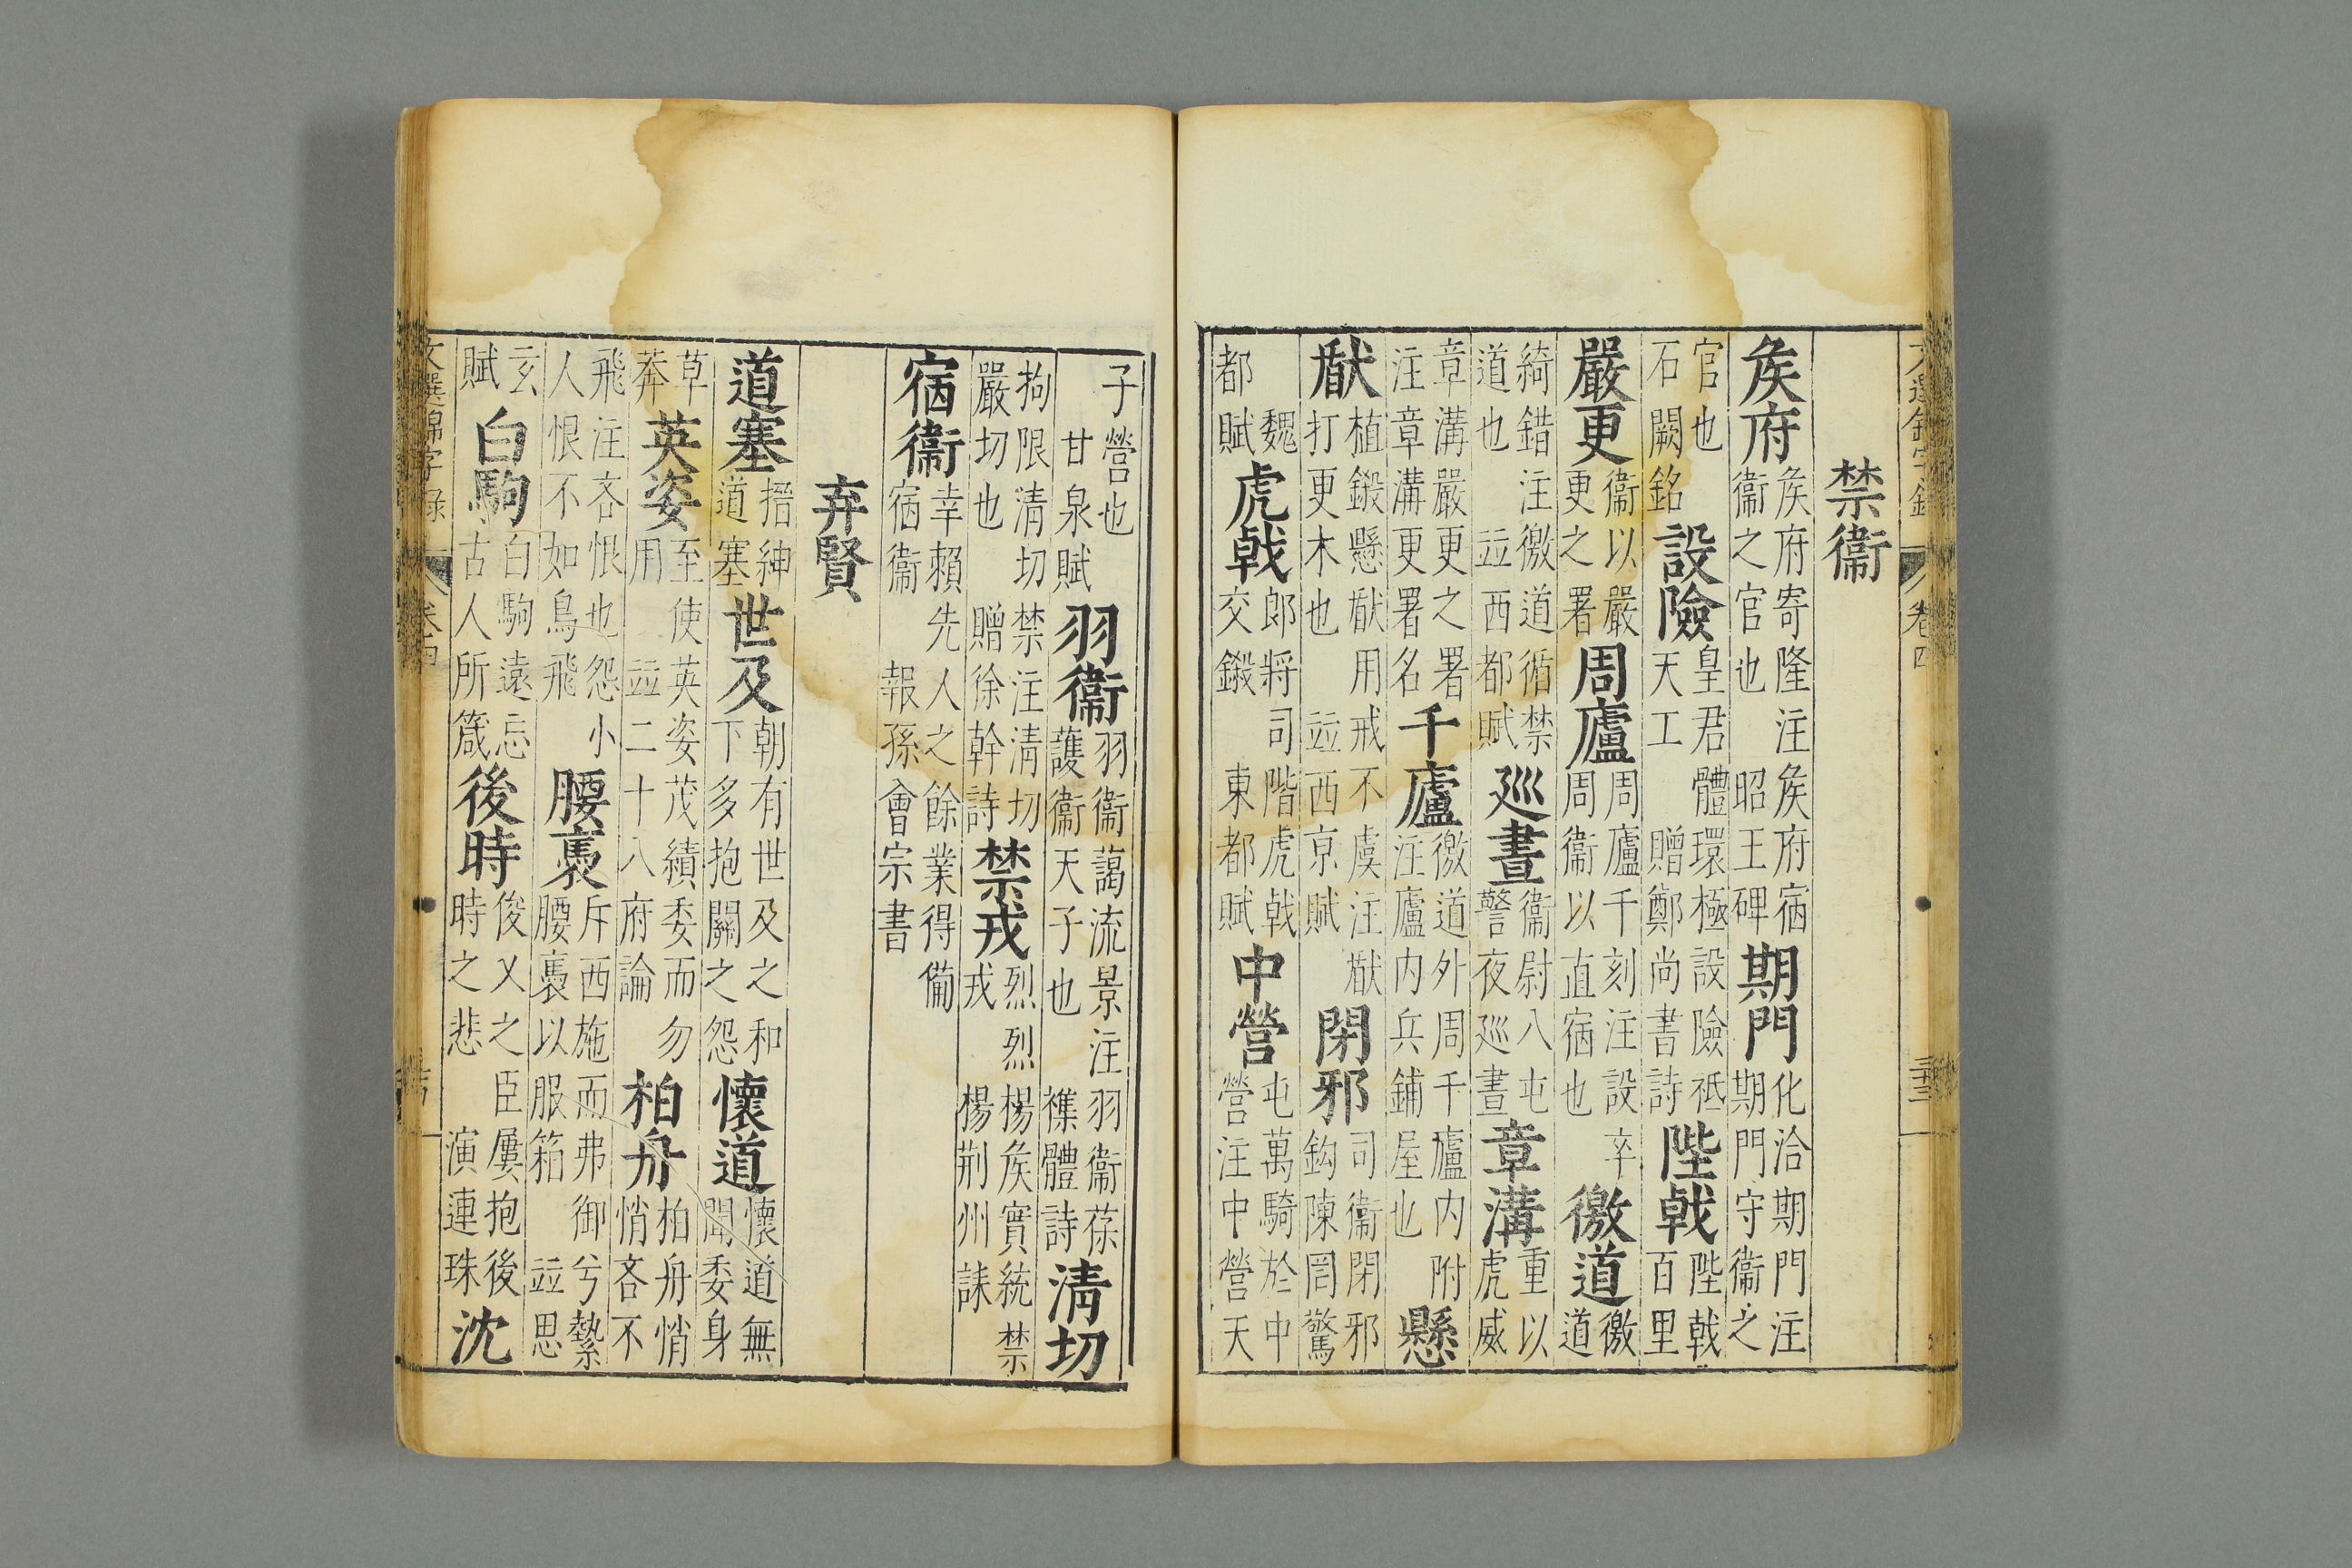 文選錦字錄 卷四 三十三
禁衞
矦府 矦府寄隆注矦府宿衞之官也 昭王碑 期門 化洽期門注期門守衞之
官也 石闕銘 設險 皇君體環極設險祗天工 贈鄭尚書詩 陛戟 陛戟百里
嚴更 衞以嚴更之署 周廬 周廬千列注設卒周衞以直宿也 徼道 徼道
綺錯注徼道循禁道也 竝西都賦 巡晝 衞尉八屯警夜巡晝 章溝 重以虎威
章溝嚴更之署注章溝更署名 千廬 徼道外周千廬内附注廬内兵鋪屋也 懸
猒 植鎩懸猒用戒不虞注猒打更木也 竝西京賦 閉邪 司衞閉邪鈎陳罔驚
魏都賦 虎戟 郎將司階虎戟交鎩 東都賦 中營 屯萬騎於中營注中營天
子營也 甘泉賦 羽衞 羽衞藹流景注羽衞葆護衞天子也 襍體詩 淸切
拘限清切禁注清切嚴切也 贈徐幹詩 禁戎 烈烈楊矦實統禁戎 楊荆州誄
宿衞 幸賴先人之餘業得僃宿衞 報孫會宗書
弃賢
道塞 搢紳道塞 世及 朝有世及之和下多抱關之怨 懷道 懷道無聞委身
草莽 英姿 至使英姿茂績委而勿用 竝二十八府論 柏舟 柏舟悄悄吝不
飛注吝恨也怨小人恨不如鳥飛 腰褭 斥西施而弗御兮縶腰褭以服箱 竝思
玄賦 白駒 白駒遠忘古人所箴 後時 俊乂之臣屢抱後時之悲 演連珠 沈
文選錦字錄 卷四